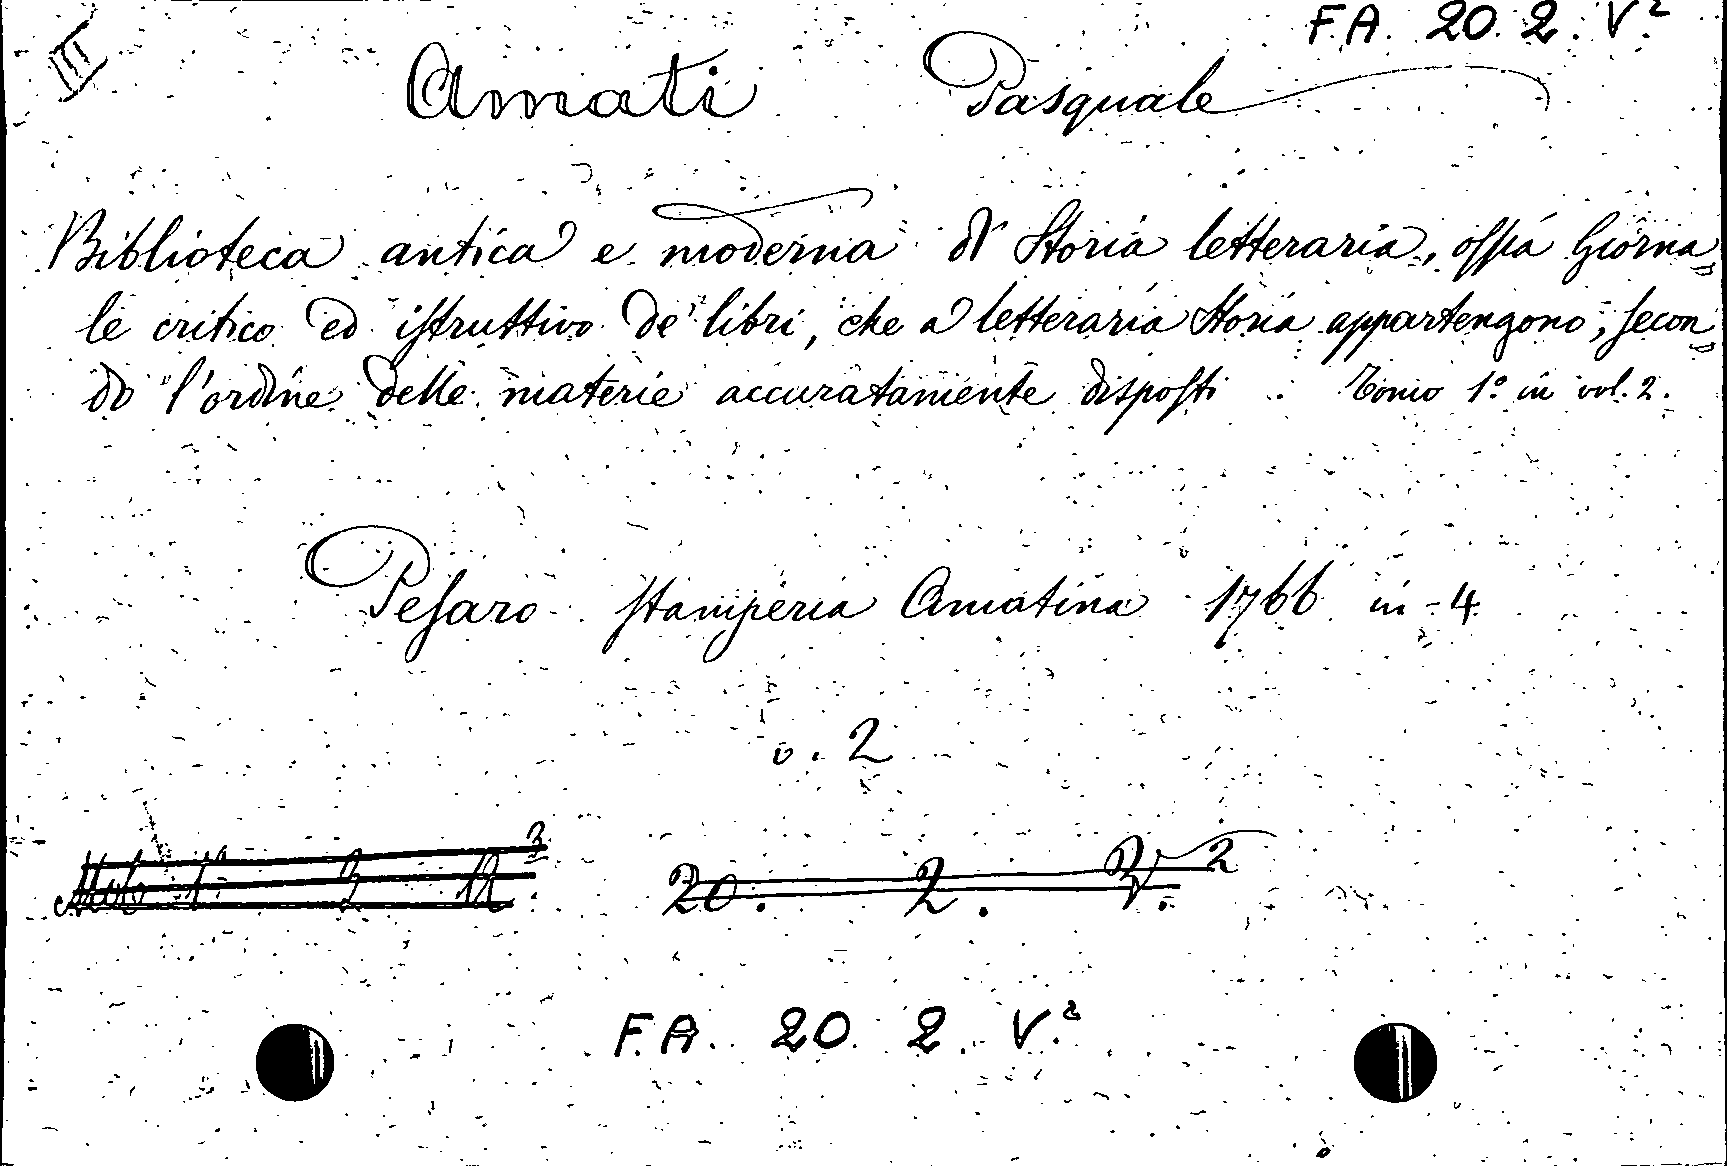 III
F.A. 20. 2. V.²
Amati Pasquale
Biblioteca antica e moderna di Storia letteraria, ossia Giorna=
le critico ed istruttivo de' libri, che a letteraria Storia appartengono, secon=
do l'ordine delle materie accuratamente disposti. Tomo 1.º in vol. 2.
Pesaro stamperia Amatina 1766 in-4
v. 2
20. 2. V. 2
F.A. 20. 2. V.²